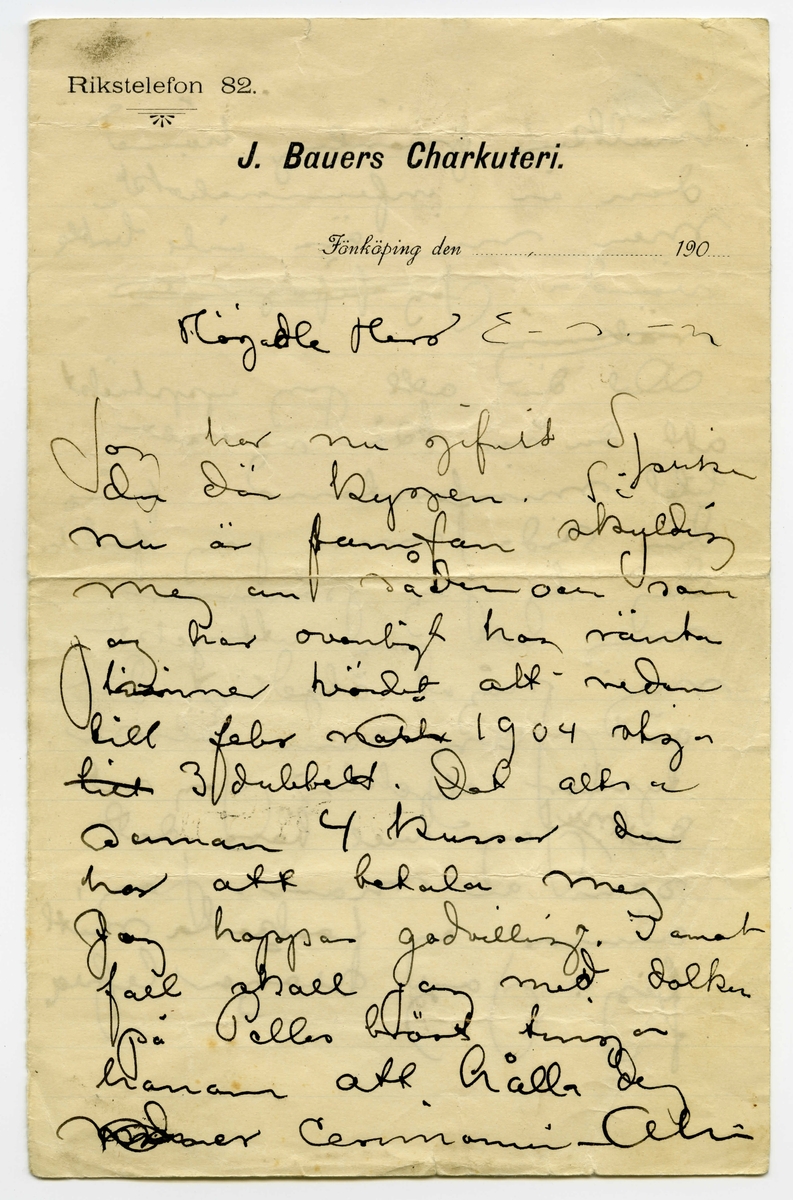 Rikstelefon 82.
J. Bauers Charkuteri.
Jönköping den 190
Högädle Herr
Jag har nu
du där kyssen. Så
nu är skyldig
mig en sådan och som
jag har ovanligt hög ränta
att redan
till febr 1904 stiga
till 3 dubbelt. Det alltså
samman 4 kyssar du
har att betala mig
Jag hoppas godvilligt. I annat
fall skall jag med dolken
på Pelles bröst tvinga
honom att hålla dig